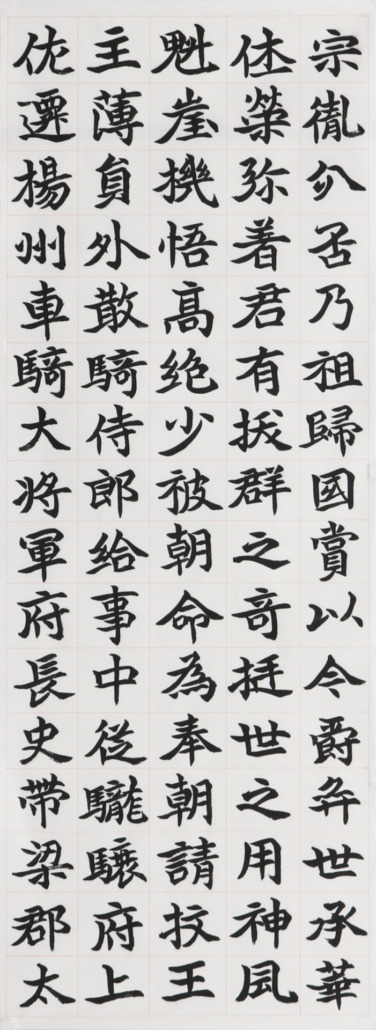 宗胤分否乃祖歸國賞以今爵弈世承華
休榮弥着君有拔群之奇挺世之用神風
魁崖機悟高絶少被朝命為奉朝請投王
主薄員外散騎侍郎給事中從龍驤府上
佐遷楊州車騎大将軍府長史帶梁郡太